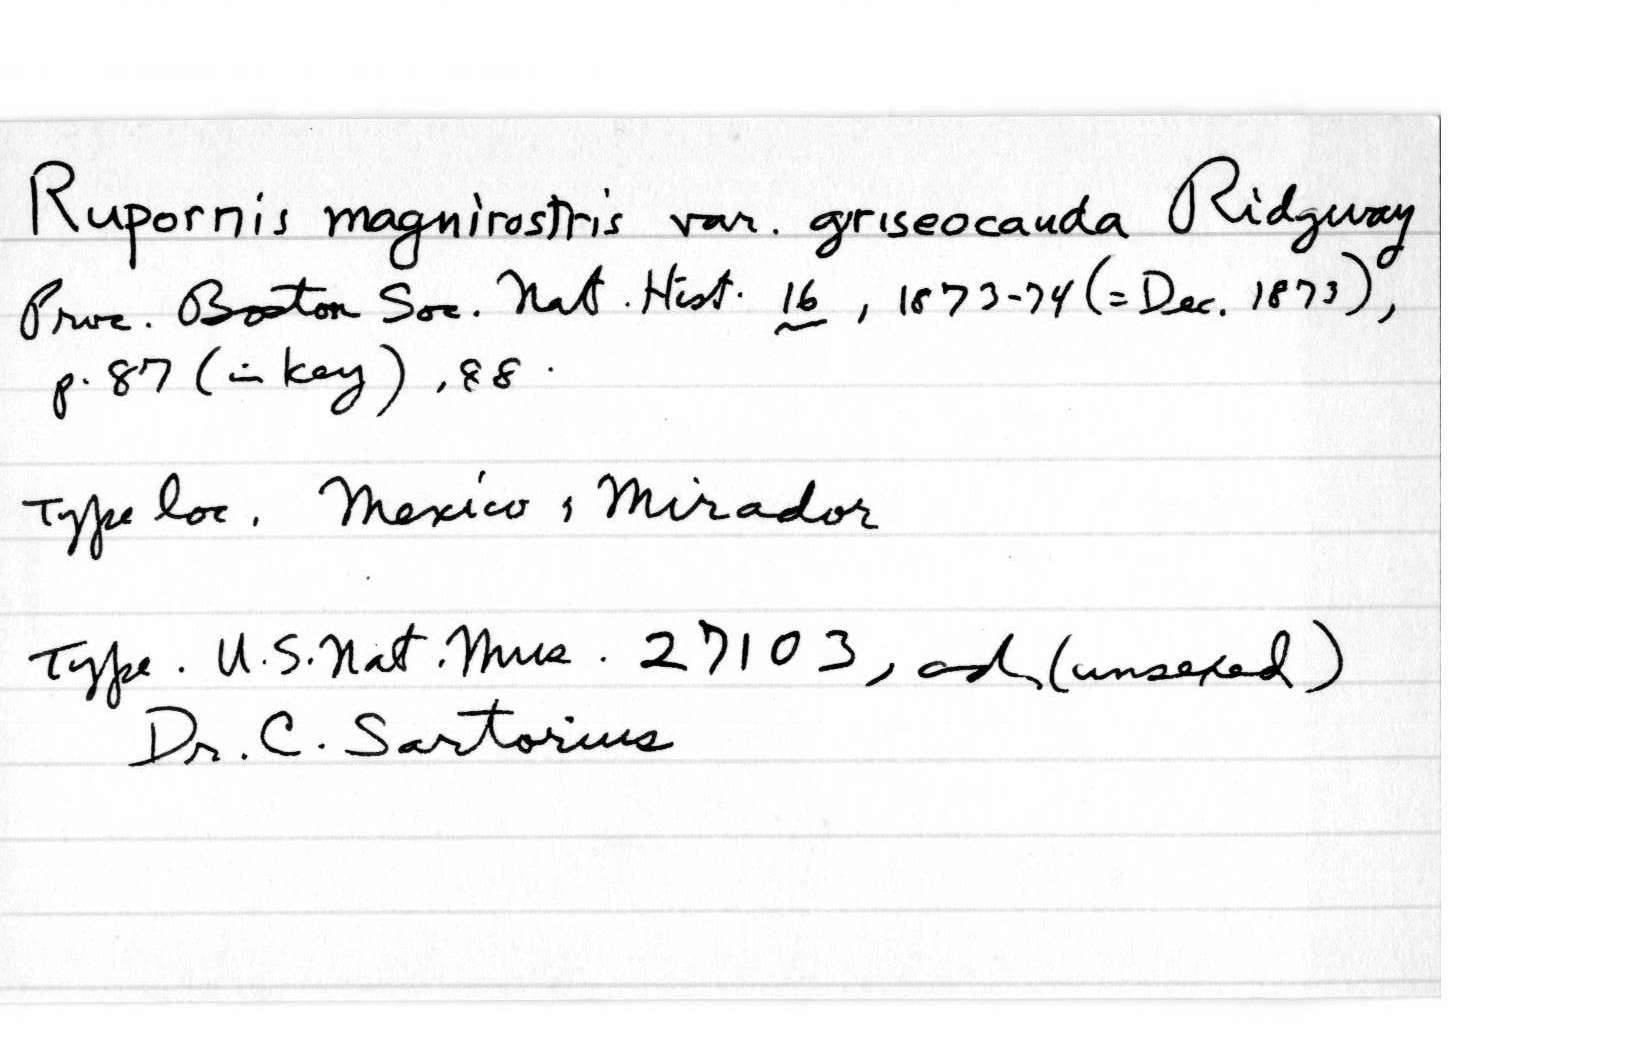 Rupornis magnirostris var. griseocauda Ridgway
Proc. Boston Soc. Nat. Hist. 16, 1873-74 (= Dec. 1873),
p. 87 (in key), 88.
Type loc. Mexico, Mirador
Type. U.S. Nat. Mus. 27103, ad. (unsexed)
Dr. C. Sartorius